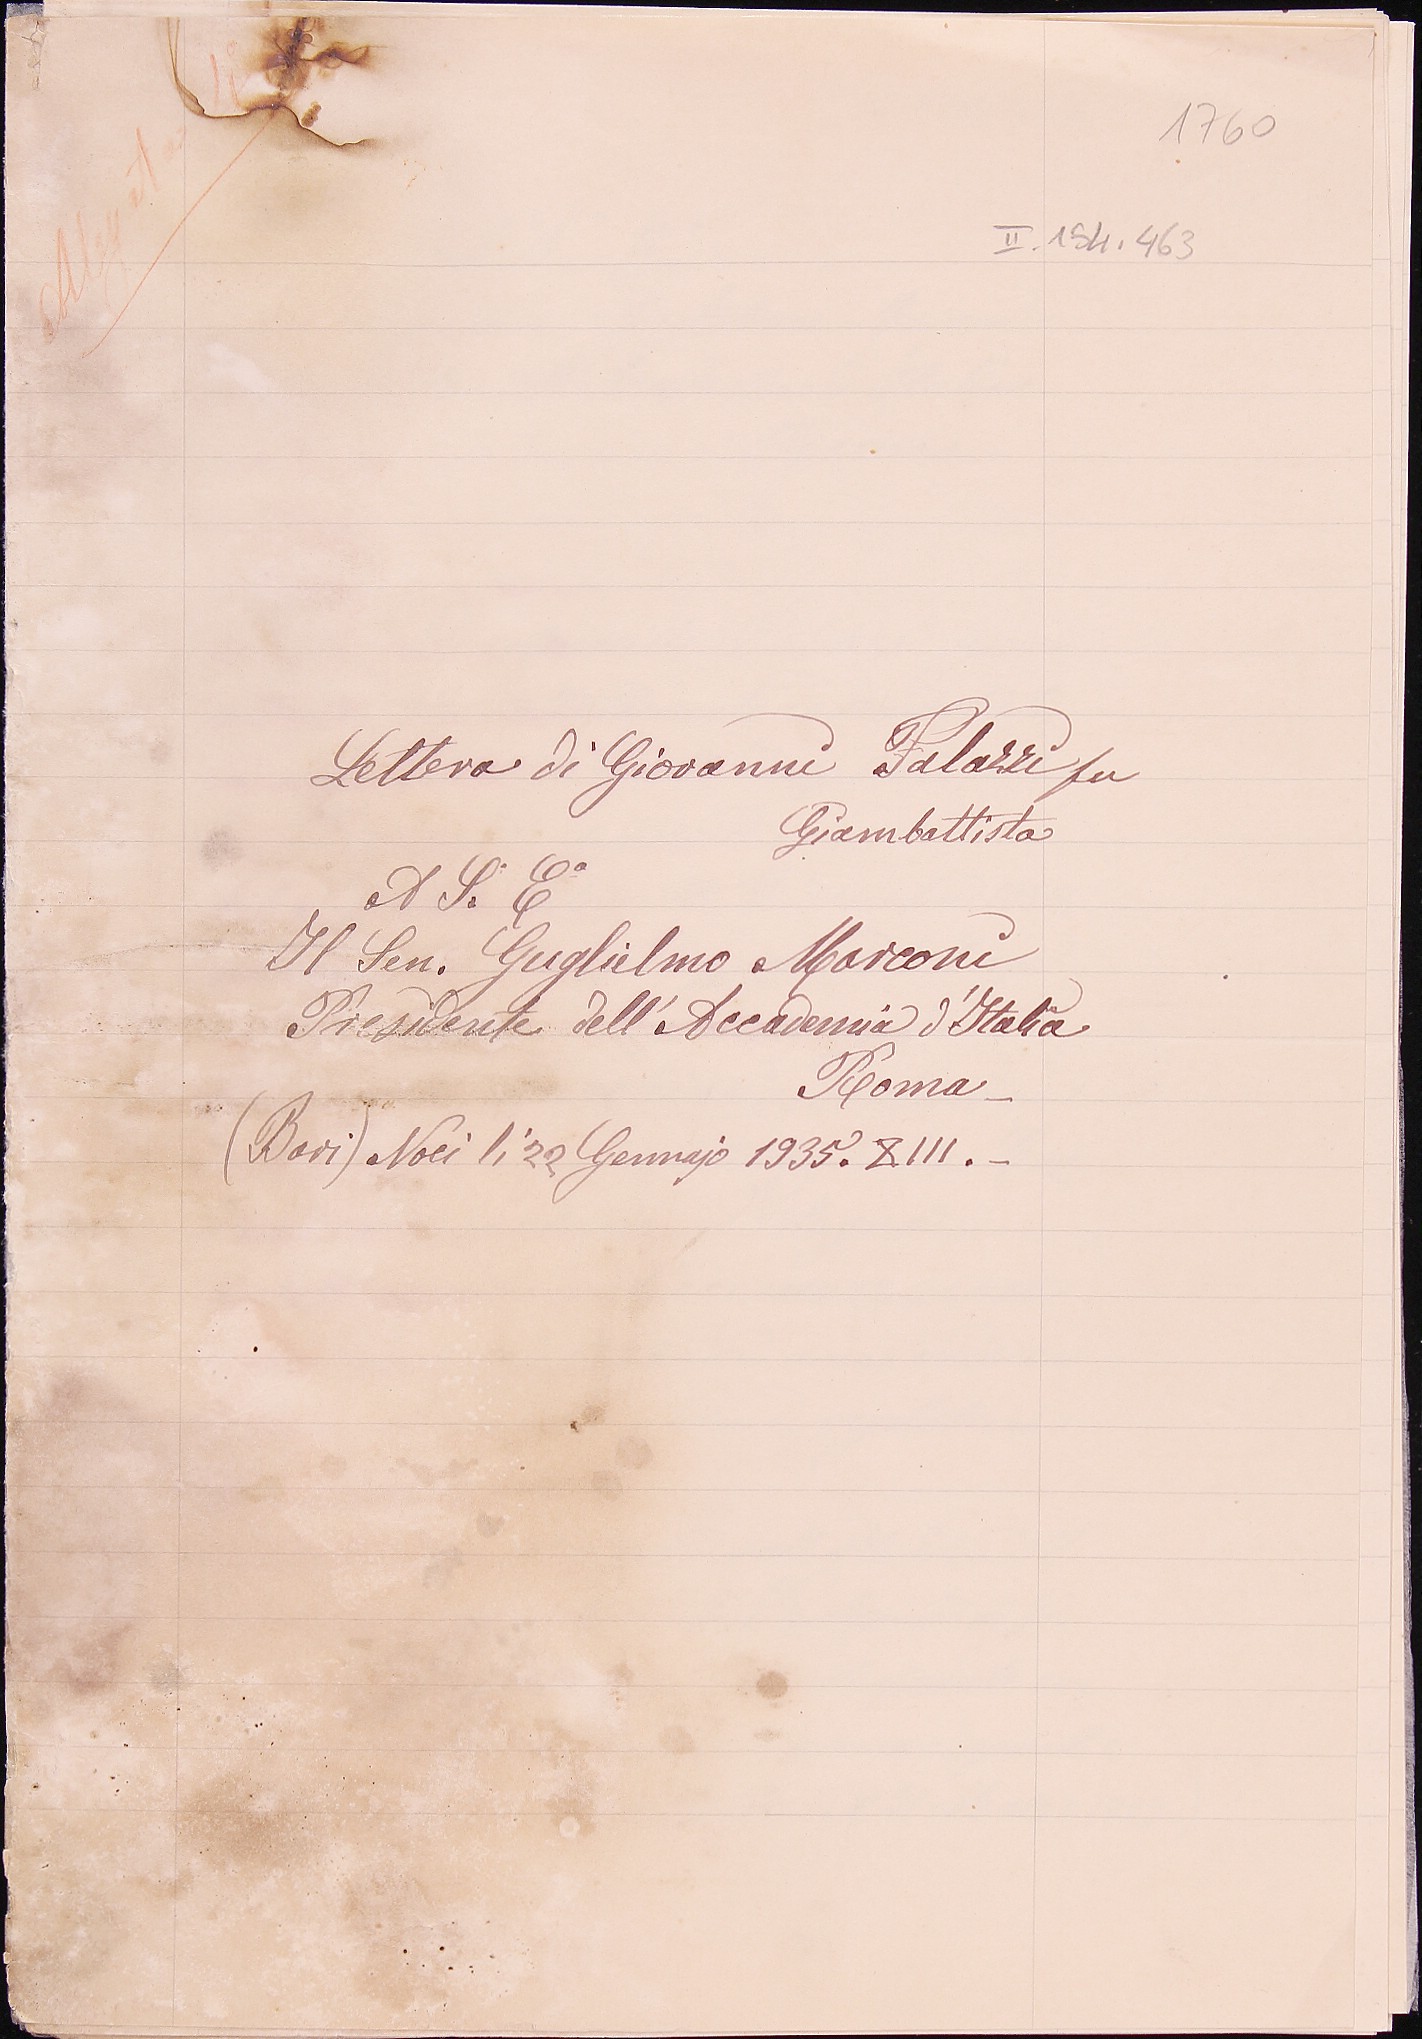 1760
II. 154. 463
Lettera di Giovanni Palazzi fu
Giambattista
A S. E.
Il Sen. Guglielmo Marconi
Presidente dell'Accademia d'Italia
Roma _
(Bari) Noci li 22 Gennajo 1935. XIII. _